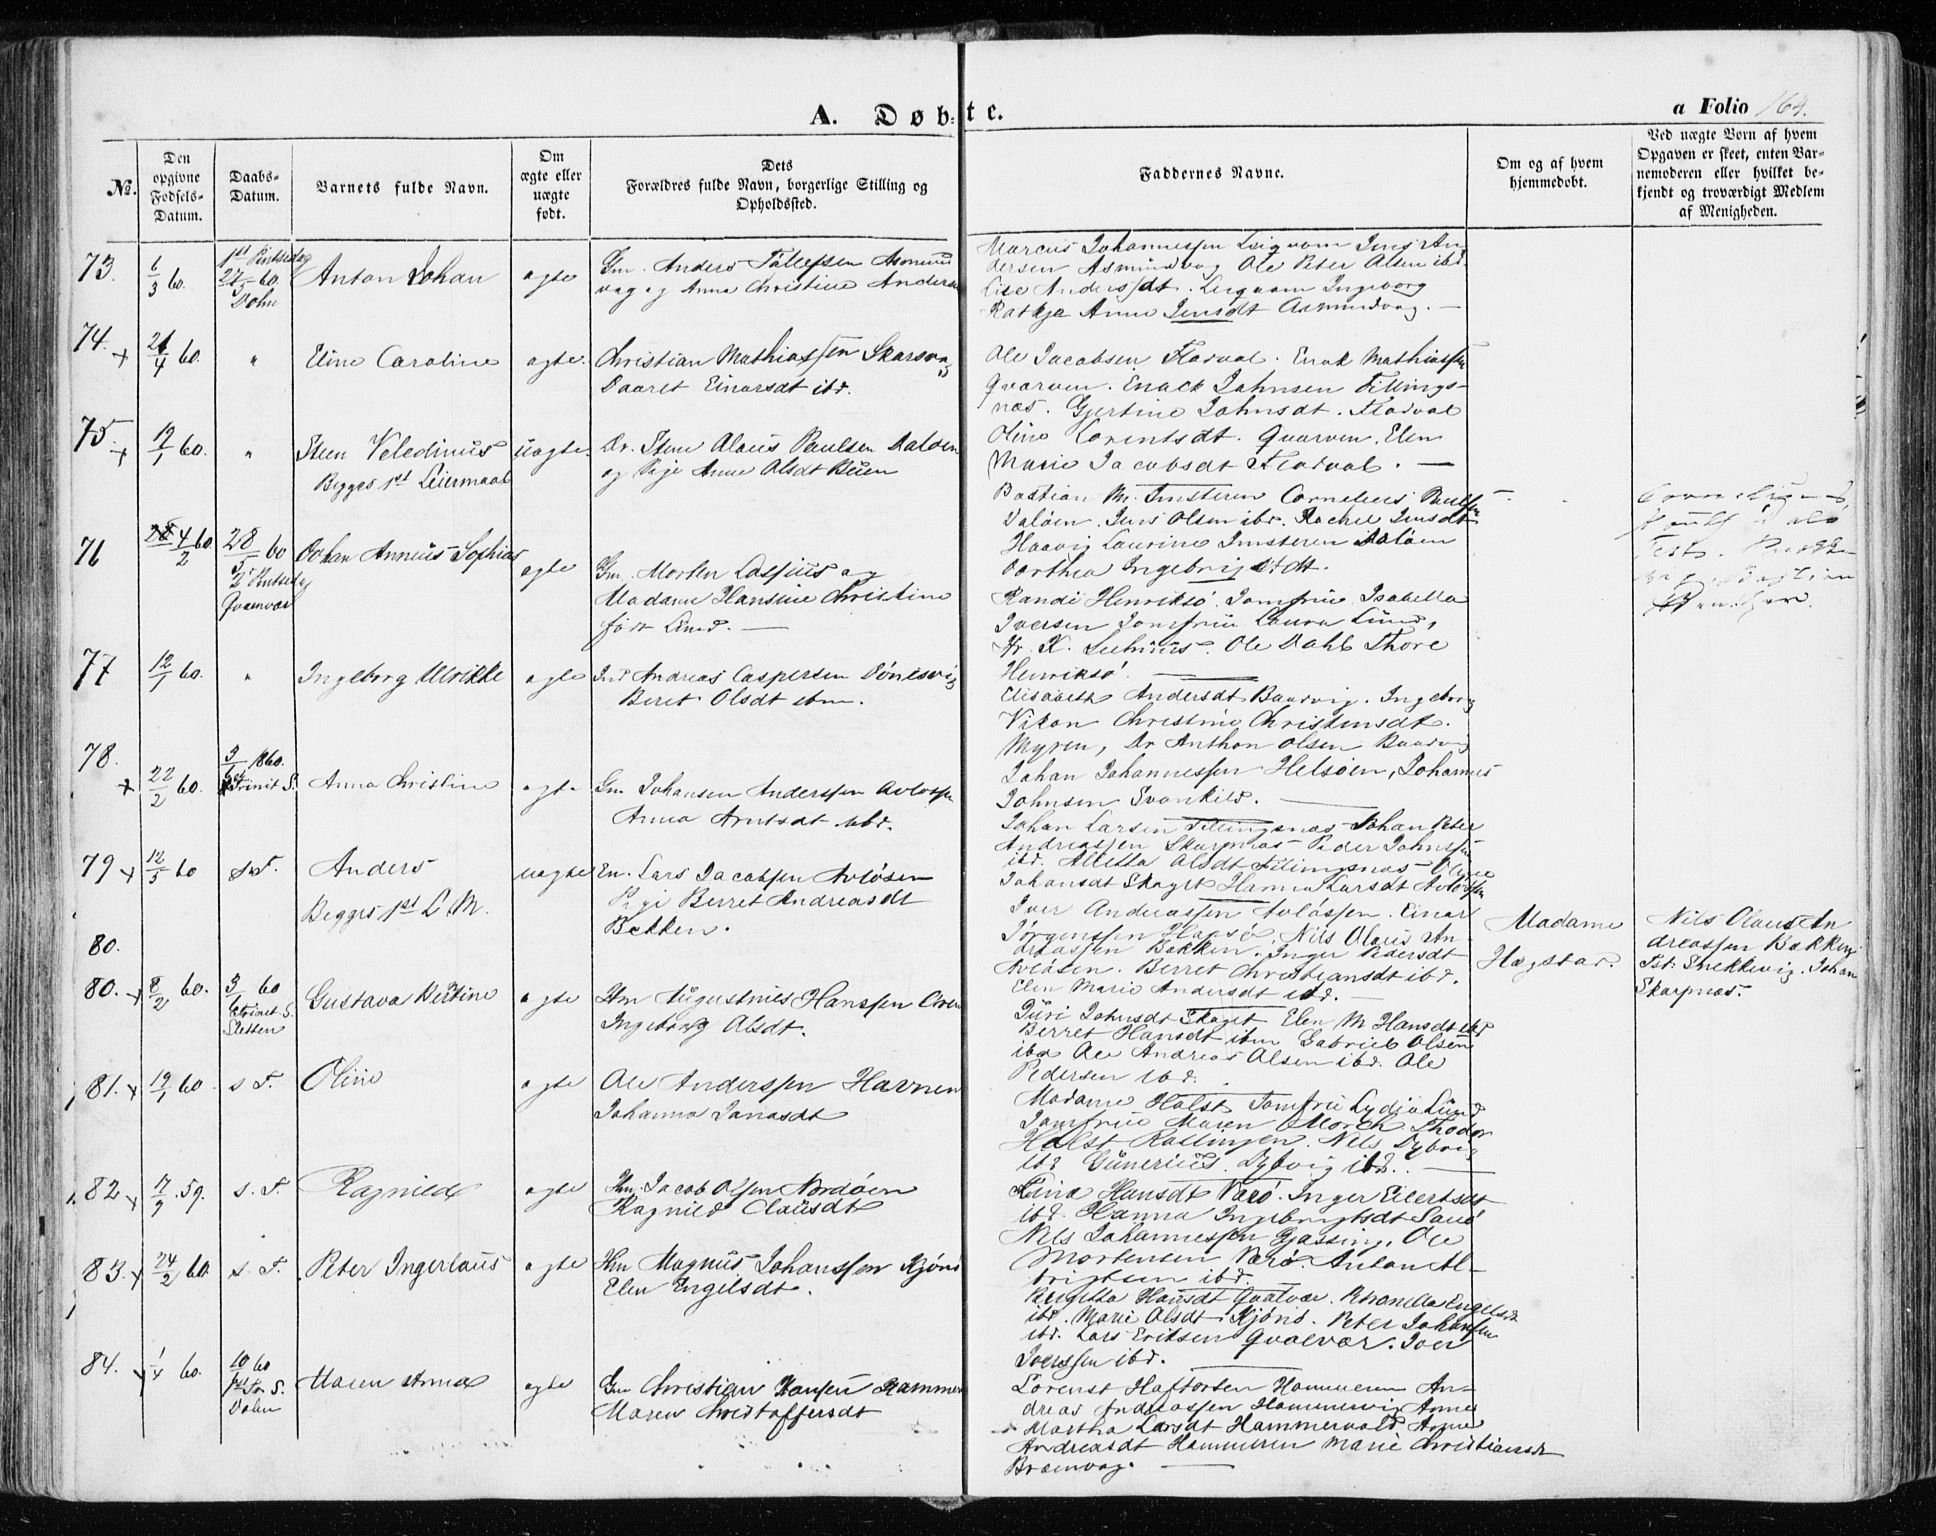 A. Døbte.
a Folio 164.
No.
Den opgivne Fødsels-Datum.
Daabs-Datum.
Barnets fulde Navn.
Om ægte eller uægte født.
Dets Forældres fulde Navn, borgerlige Stilling og Opholdssted.
Faddernes Navne.
Om og af hvem hjemmedøbt.
Ved uægte Børn af hvem Opgaven er skeet, enten Barnemoderen eller hvilket bekjendt og troværdigt Medlem af Menigheden.
73.
6/3 60.
1st Pintsedag
27/5 60.
Dohn
Anton Johan
ægte
Gm. Anders
vag og Anna Christine Anders
Marcus Johannessen Leiqvam Jens An-
dersen Asmundvag Ole Peter Olsen ibd.
Lise Andersdt. Leiqvam Ingeborg
Ratkje Anne Jensdt Asmundvag. —
74. +
21/4 60.
"
Eline Caroline
ægte.
Christian Mathiassen Skarsvag
Daaret Einarsdt ibd.
Ole Jacobsen Fladval. Enok Mathiassen
Qvarven. Enack Johnsen Fillings-
næs. Gjertine Johnsdt. Fladval
Oline Lorentsdt. Qvarven. Elen
Marie Jacobsdt Fladval. —
75. +
12/1 60.
"
Steen Veledinus
Begges 1st Leiermaal
Uægte.
Dr. Stene Olaus Paulsen Daløen
og Pige Anne Olsdt Buen
Bastian M. Imsteren Cornelius Paulsen
Daløen. Jens Olsen ibd. Rachel Jensdt
Haavig Laurine Imsteren Daløen
Dorthea Ingebrigtsdt.
76
4/2 60.
28/5 60
2 Pintsedag
Qvænvær
Johan Annæus Sophias
ægte
Gm. Morten Lassius og
Madame Hansine Christine
født Lund. —
Randi Henriksø. Jomfrue Isabella
Iversen Jomfrue Laura Lund,
Hr. K. Ole Dahl Thore
Henriksø.
77
12/1 60.
"
Ingeborg Ulrikke
ægte
Ind Andreas Caspersen Dønesvig
Beret Olsdt ibm.
Elisabeth Andersdt Baadvig. Ingeborg
Vikan Christine Christensdt.
Myren, Dr Anthon Olsen Baadvig
Johan Johannessen Helsøen, Johannes
Johnsen Svankild.
78. +
22/2 60.
3/6 1860.
Trinit S.
Anna Christine
ægte
Gm Johansen Anderssen Avløssen
Anna Arntsdt ibd.
Johan Larsen Fillingsnæs Johan Peter
Andreassen Skarpnæs Peder Johnssen
ibd. Alletta Olsdt Fillingsnæs Oline
Johansdt Skaget Hanna Larsdt Avløssen
79 +
12/5 60
s. T.
Anders
Begges 1st L. M.
uægte
En. Lars Jacobsen Avløsen
Pige Berret Andreasdt
Bakken.
Iver Andreassen Avløssen. Einar
Jørgenssen Nils Olaus An-
dreassen Bakken. Inger Pedersdt
Avløsen. Berret Christiansdt ibd.
Elen Marie Andersdt ibd. —
Madame
Hegstad.
Nils Olaus An
dreassen Bakken,
Tst: Snekkevig. Johan
Skarpnæs.
80.
80. +
8/2 60.
3/6 60
Trinit S.
Sletten
Gustava Bertine
ægte
Hm Augustnius Hanssen
Ingeborg Olsdt.
Guri Johnsdt Skaget Elen M Hansdt ibd
Berret Hansdt ibm Gabriel Olsen
ibd Ole Andreas Olsen ibd. Ole
Pedersen ibd.
81. +
19/1 60.
s. T.
Oline
ægte
Ole Anderssen Havnen
Johanna Jonasdt
Madame Holst Jomfrue Lydia Lund
Jomfrue Maren Mørch Thodor
Holst Nils Dybvig
ibd Gunerius Dybvig ibd. —
82 +
17/9 59.
s. T.
Ragnild
ægte
Hm. Jacob Olsen Nordøen
Ragnild Claüsdt
Stina Hansdt Værø. Inger Eilertsdt
ibd. Hanna Ingebrigtsdt
Nils Johannessen Gjæssing. Ole
Mortensen Værø Anton Al-
brigtsen ibd.
83. +
24/2 60.
s. T.
Peter Ingerlaus
ægte
Hm Magnus Johanssen Kjønø
Elen Engelsdt.
Bergitta Hansdt Qvalvær. Engelsdt
ibd. Marie Olsdt Kjønø. Peter Johansen
ibd. Lars Eriksen Qvalvær. Iver
Iverssen ibd.
84. +
1/4 60.
10/6 60
S.
Dolm
Maren Anna
ægte
Gm Christian Hansen Hammer
Maren Christoffersdt
Lorenst Haftorsen Hammeren An-
dreas Andreassen Hammervig Anne
Martha Larsdt Hammervold.
Andreasdt Hammeren Marie Christiansdt
Bræmvag. —